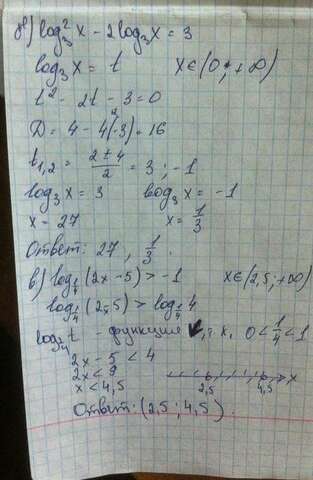 ж) log₃²x - 2log₃x = 3
log₃x = t x∈(0; +∞)
t² - 2t - 3 = 0
D = 4 - 4(-3) = 16
t₁,₂ = (2±4)/2 = 3; -1
log₃x = 3 log₃x = -1
x = 27 x = 1/3
Ответ: 27, 1/3.
в) log₁/₄(2x-5) > -1 x∈(2,5; +∞)
log₁/₄(2x-5) > log₁/₄4
log₁/₄t - функция ↙, т.к. 0<1/4<1
2x - 5 < 4
2x < 9
x < 4,5 2,5 4,5 x
Ответ: (2,5; 4,5).